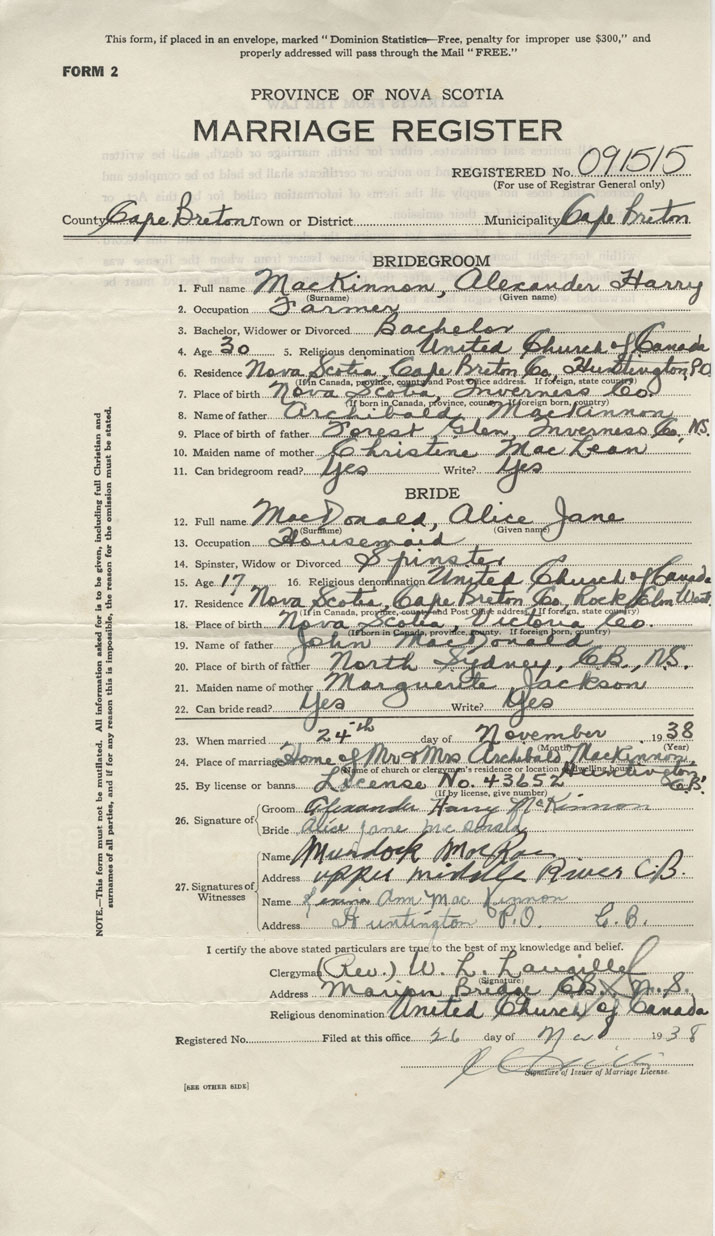 This form, if placed in an envelope, marked "Dominion Statistics—Free, penalty for improper use $300," and
properly addressed will pass through the Mail "FREE."
FORM 2
PROVINCE OF NOVA SCOTIA
MARRIAGE REGISTER
REGISTERED No. 091515
(For use of Registrar General only)
County Cape Breton Town or District Municipality Cape Breton
BRIDEGROOM
1. Full name MacKinnon, Alexander Harry
(Surname) (Given name)
2. Occupation Farmer
3. Bachelor, Widower or Divorced Bachelor
4. Age 30 5. Religious denomination United Church of Canada
6. Residence Nova Scotia, Cape Breton Co, Huntington P.O
(If in Canada, province, county and Post Office address. If foreign, state country)
7. Place of birth Nova Scotia, Inverness Co.
(If born in Canada, province, county. If foreign born, country)
8. Name of father Archibald MacKinnon
9. Place of birth of father Forest Glen, Inverness Co, N.S.
10. Maiden name of mother Christene MacLean
11. Can bridegroom read? Yes Write? Yes
BRIDE
12. Full name MacDonald, Alice Jane
(Surname) (Given name)
13. Occupation Housemaid
14. Spinster, Widow or Divorced Spinster
15. Age 17 16. Religious denomination United Church of Canada
17. Residence Nova Scotia, Cape Breton Co, Rock Elm West
(If in Canada, province, county and Post Office address. If foreign, state country)
18. Place of birth Nova Scotia, Victoria Co.
(If born in Canada, province, county. If foreign born, country)
19. Name of father John MacDonald
20. Place of birth of father North Sydney, C.B., N.S.
21. Maiden name of mother Marguerite Jackson
22. Can bride read? Yes Write? Yes
23. When married 24th day of November 1938
(Month) (Year)
24. Place of marriage Home of Mr & Mrs Archibald Mackinnon,
(Name of church or clergymen's residence or location of dwelling house) Huntington
25. By license or banns License No. 43652 C.B.
(If by license, give number)
26. Signature of Groom Alexander Harry McKinnon
Bride Alice Jane McDonald
27. Signatures of Witnesses
Name Murdock MacRae
Address upper middle River C.B.
Name Ann MacKinnon
Address Huntington P.O. C.B.
I certify the above stated particulars are true to the best of my knowledge and belief.
Clergyman (Rev.) W. L. Langille
(Signature)
Address Marion Bridge C.B., N.S.
Religious denomination United Church of Canada
Registered No. Filed at this office 26 day of Nov 1938
Signature of Issuer of Marriage License.
[SEE OTHER SIDE]
NOTE.—This form must not be mutilated. All information asked for is to be given, including full Christian and
surnames of all parties, and if for any reason this is impossible, the reason for the omission must be stated.